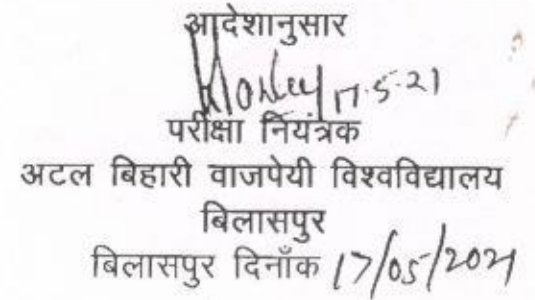 आदेशानुसार
17.5.21
परीक्षा नियंत्रक
अटल बिहारी वाजपेयी विश्वविद्यालय
बिलासपुर
बिलासपुर दिनाँक 17/05/2021